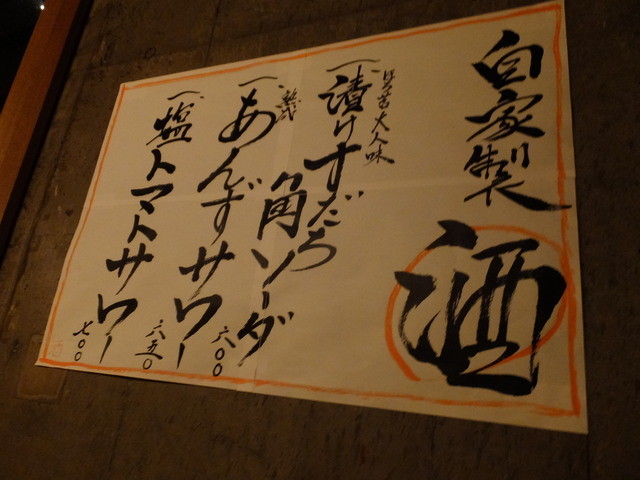 自家製
酒
ほろ苦大人味
一、漬けすだち
角ソーダ
六〇〇
一、あんずサワー
六五〇
一、塩トマトサワー
七〇〇